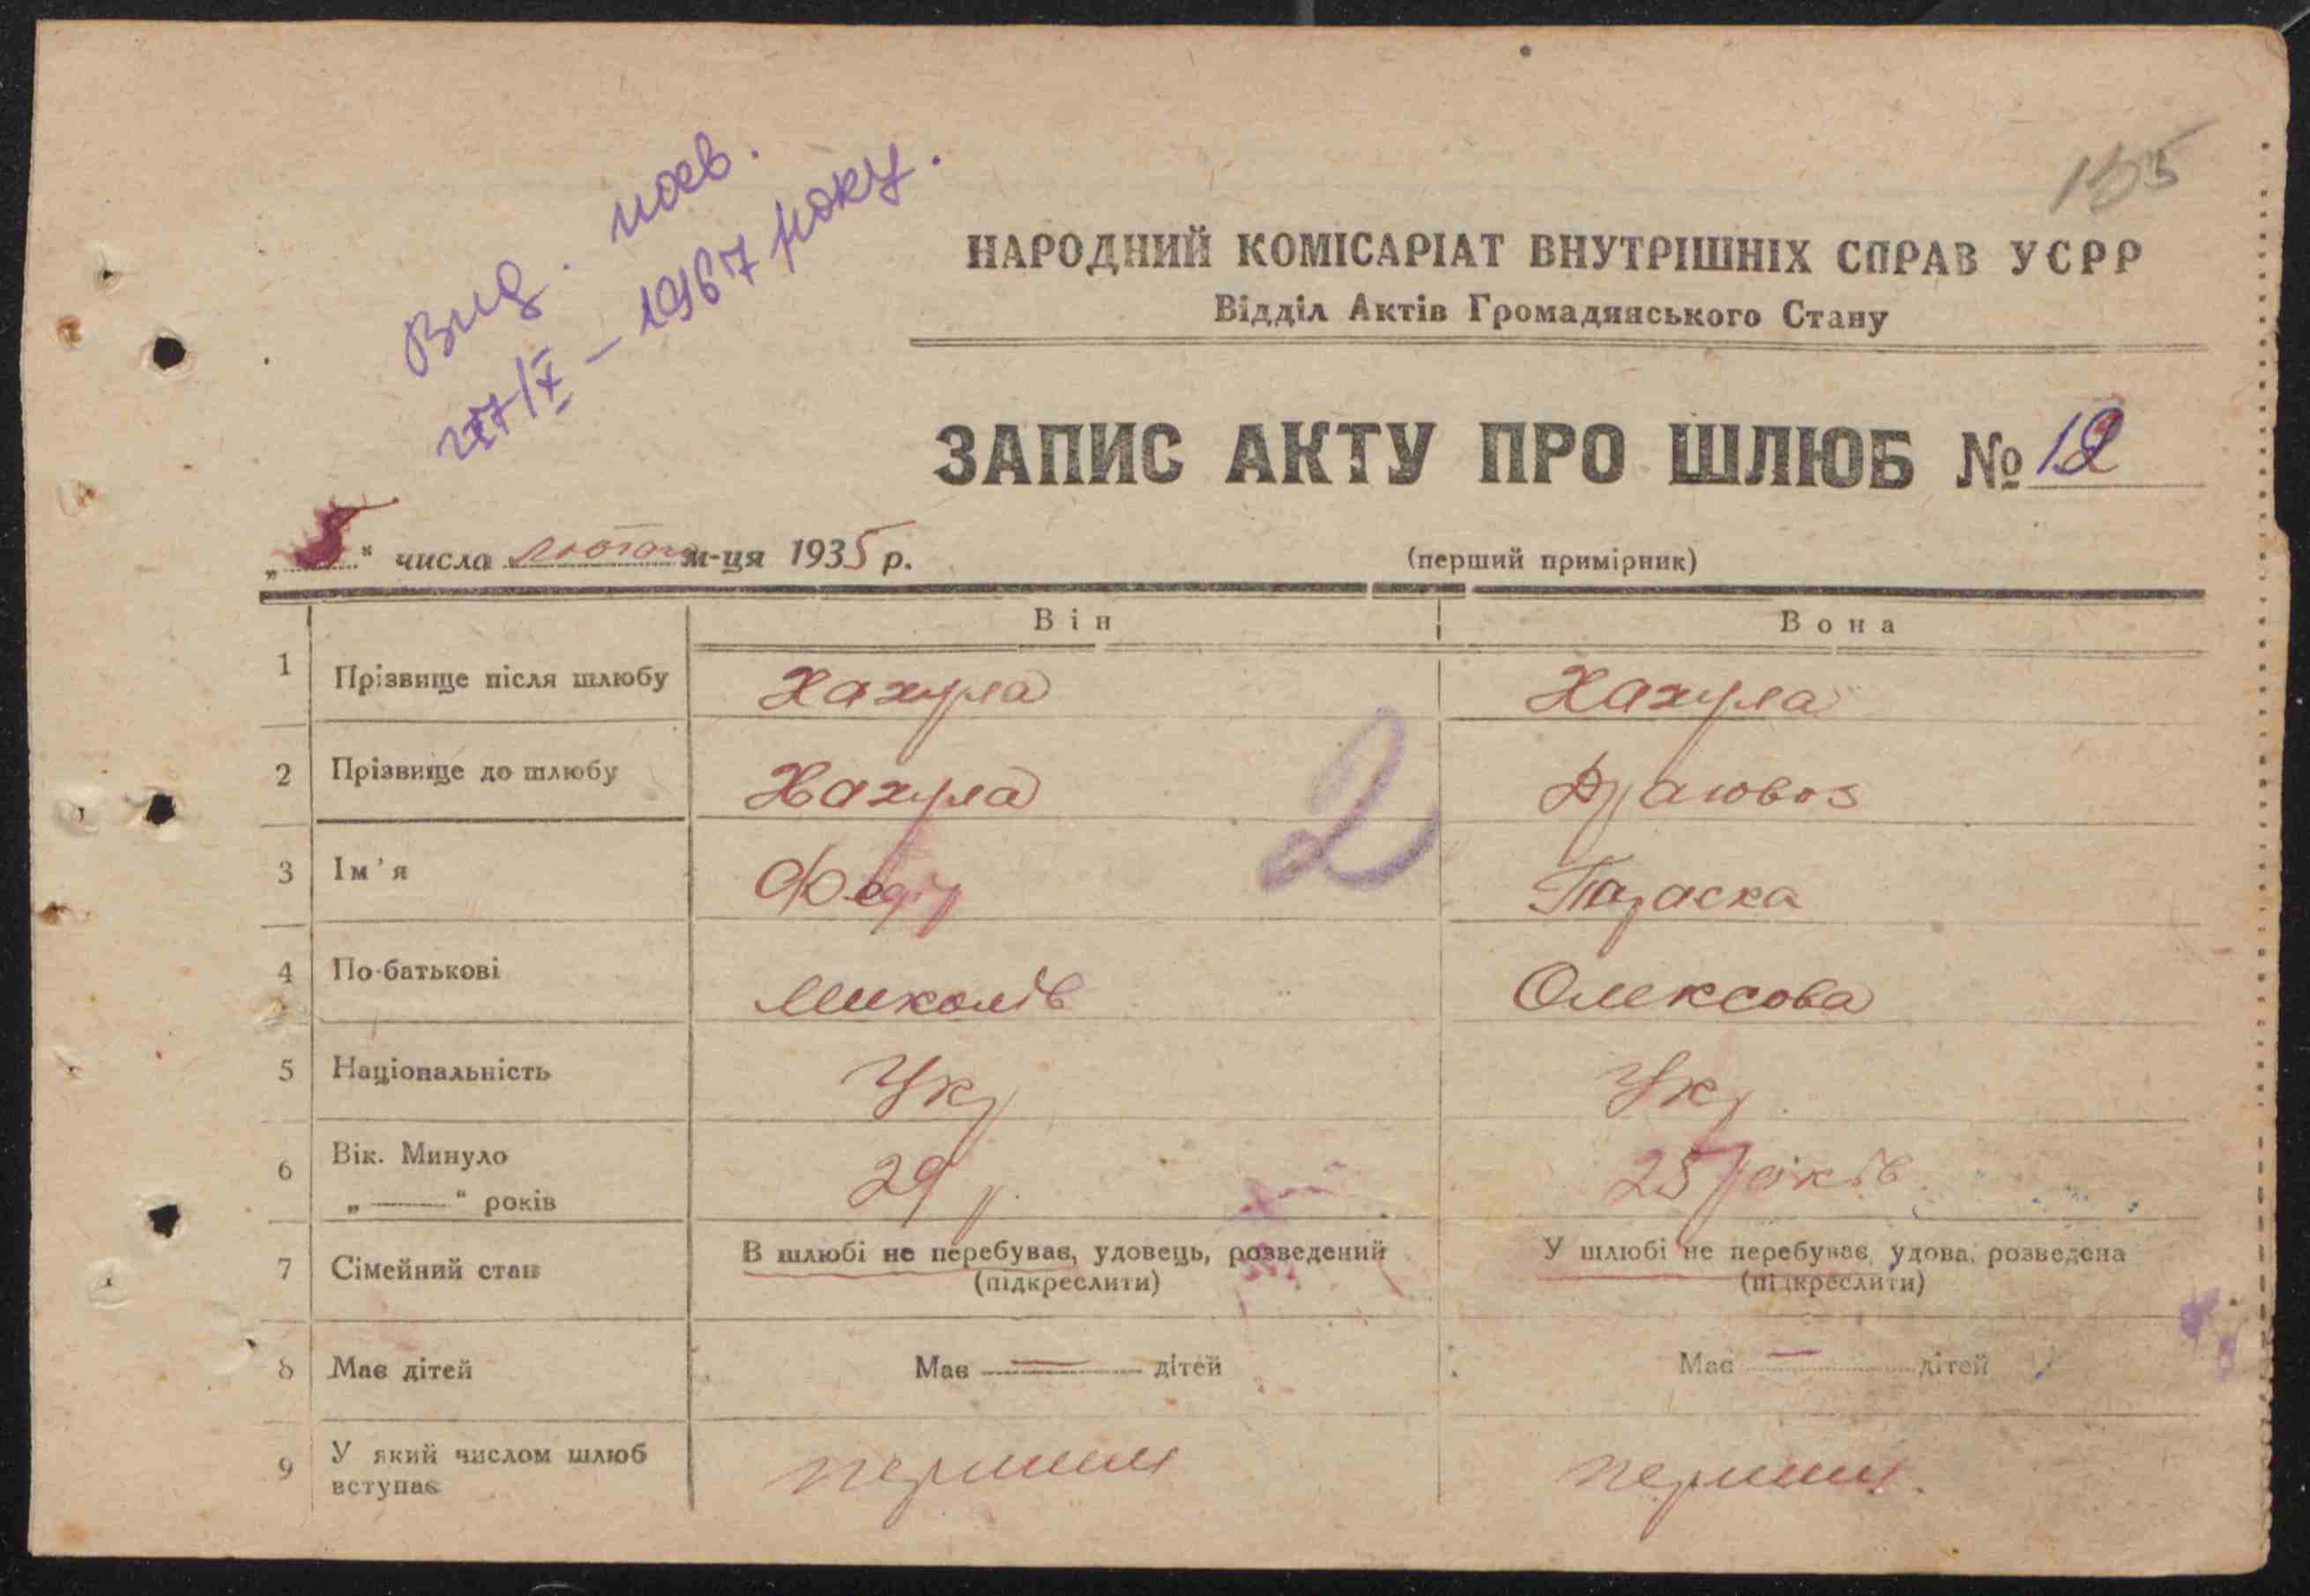 Вид. посв.
27/X – 1967 року.
155
НАРОДНИЙ КОМІСАРІАТ ВНУТРІШНІХ СПРАВ УСРР
Відділ Актів Громадянського Стану
ЗАПИС АКТУ ПРО ШЛЮБ № 12
„5“ числа лютого м-ця 1935 р.
(перший примірник)
Він Вона
1 Прізвище після шлюбу Хахула Хахула
2 Прізвище до шлюбу Хахула
3 Ім'я Федір Параска
2
4 По-батькові Миколів Олексова
5 Національність Укр Укр
6 Вік. Минуло „——“ років 29 р. 25 років.
7 Сімейний стан В шлюбі не перебуває, удовець, розведений (підкреслити) У шлюбі не перебуває, удова, розведена (підкреслити)
8 Має дітей Має — дітей Має — дітей
9 У який числом шлюб вступає перший перший.